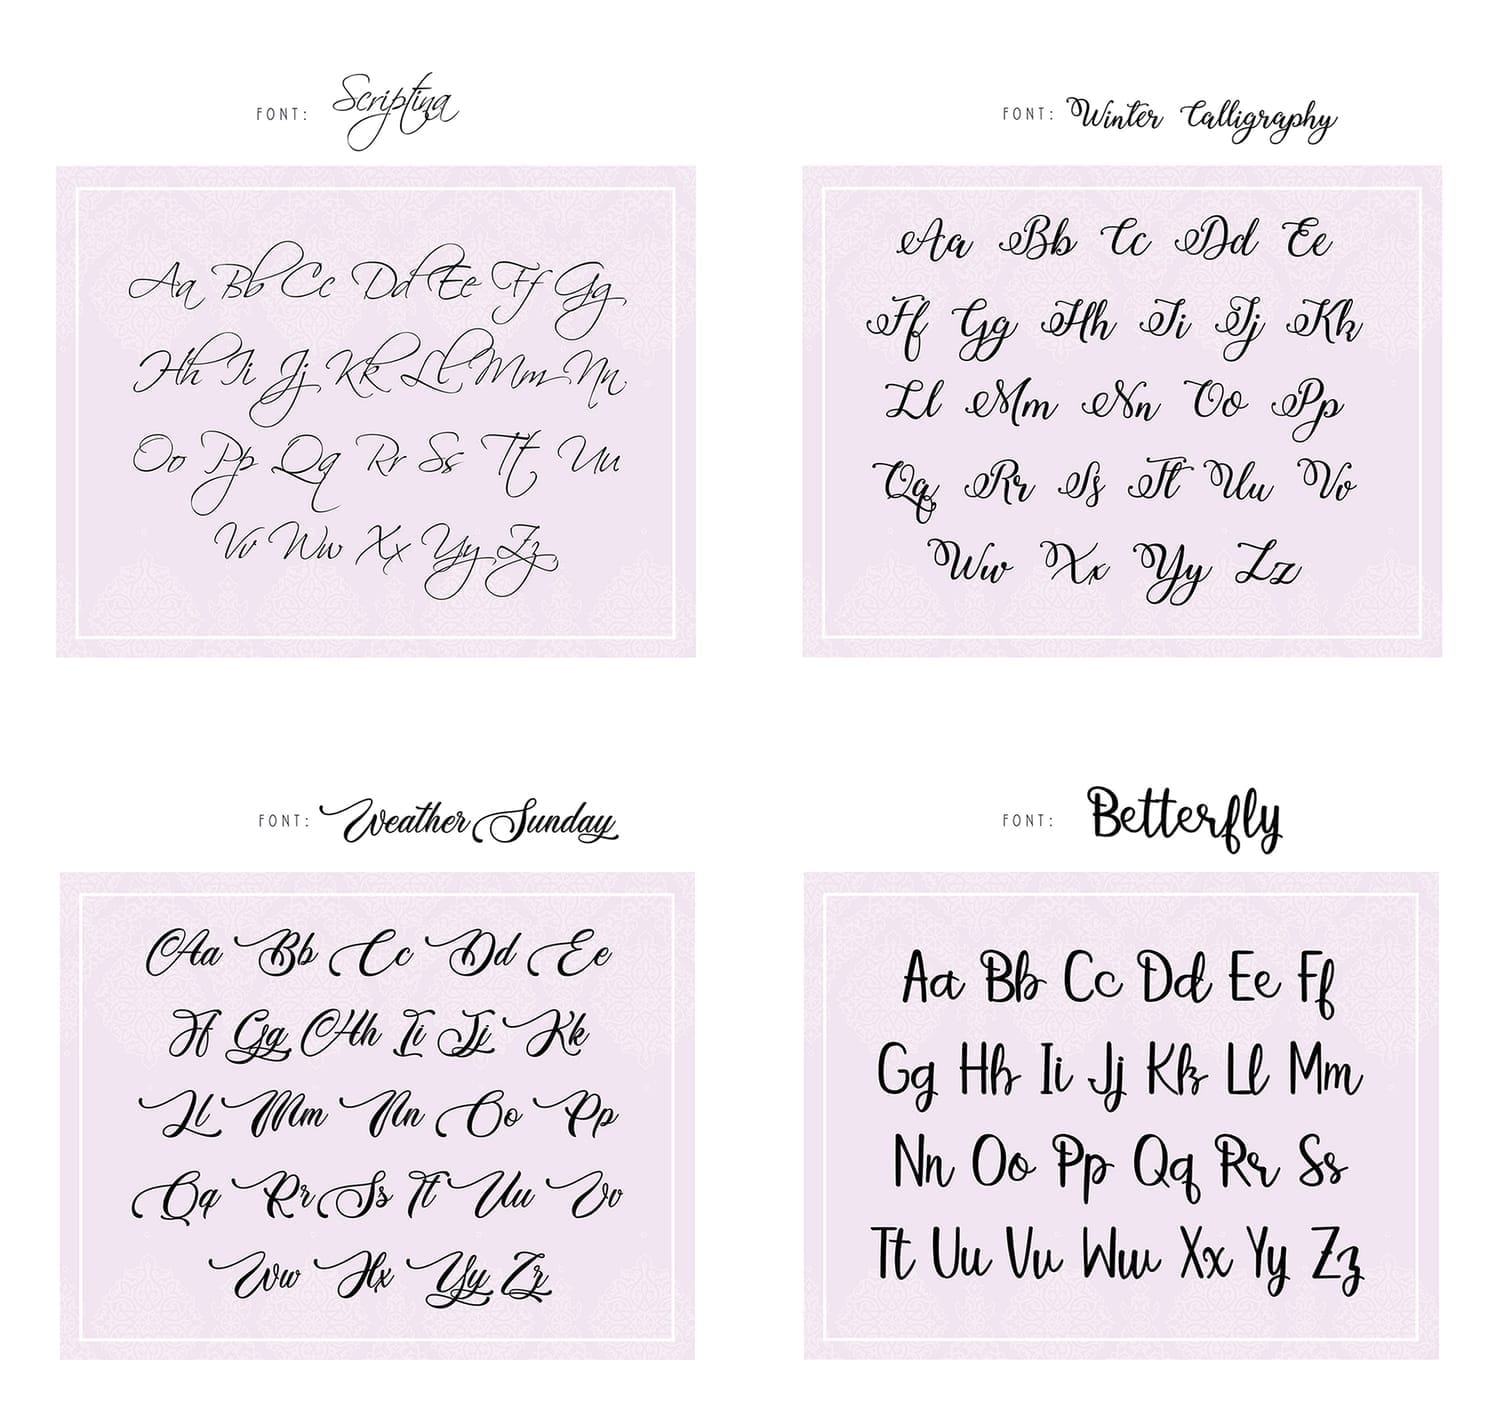 FONT: Scriptina
Aa Bb Cc Dd Ee Ff Gg
Hh Ii Jj Kk Ll Mm Nn
Oo Pp Qq Rr Ss Tt Uu
Vv Ww Xx Yy Zz
FONT: Winter Calligraphy
Aa Bb Cc Dd Ee
Ff Gg Hh Ii Jj Kk
Ll Mm Nn Oo Pp
Qq Rr Ss Tt Uu Vv
Ww Xx Yy Zz
FONT: Weather Sunday
Aa Bb Cc Dd Ee
Ff Gg Hh Ii Jj Kk
Ll Mm Nn Oo Pp
Qq Rr Ss Tt Uu Vv
Ww Xx Yy Zz
FONT: Betterfly
Aa Bb Cc Dd Ee Ff
Gg Hh Ii Jj Kk Ll Mm
Nn Oo Pp Qq Rr Ss
Tt Uu Vv Ww Xx Yy Zz